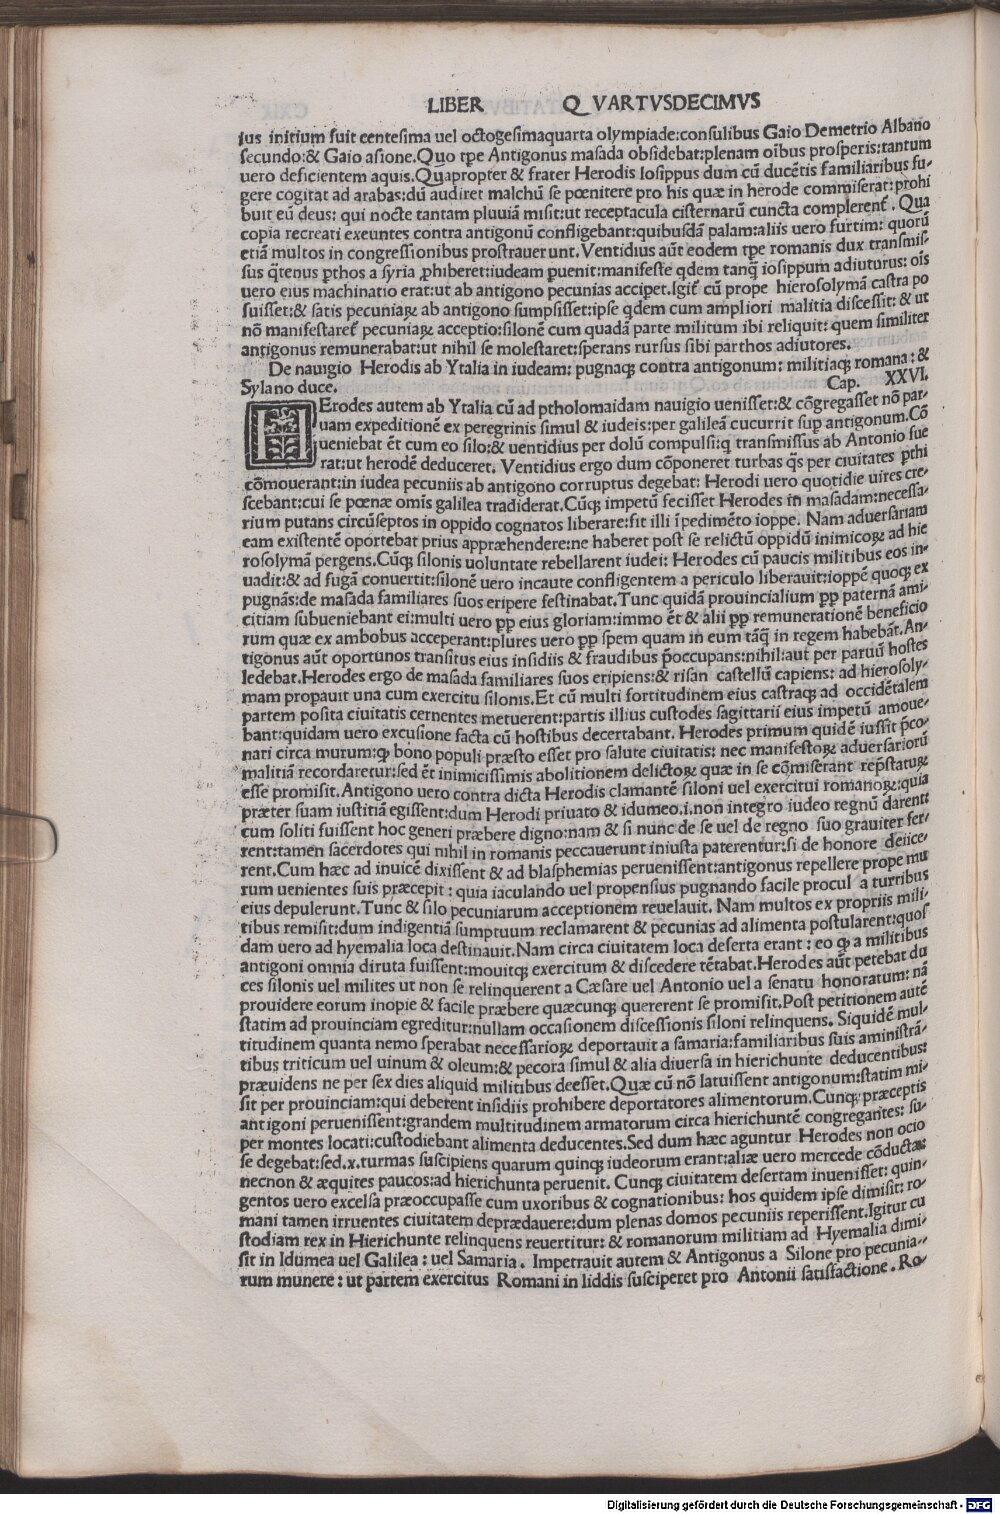 LIBER Q VARTVSDECIMVS
ius initium fuit centesima uel octogesimaquarta olympiade:consulibus Gaio Demetrio Albano
secundo:& Gaio asione.Quo tpe Antigonus masada obsidebat:plenam oĩbus prosperis:tantum
uero deficientem aquis.Quapropter & frater Herodis Iosippus dum cũ ducẽtis familiaribus fu-
gere cogitat ad arabas:dũ audiret malchũ se pœnitere pro his quæ in herode commiserat:prohi
buit eũ deus: qui nocte tantam pluuiã misit:ut receptacula cisternarũ cuncta complerent̃. Qua
copia recreati exeuntes contra antigonũ confligebant:quibusdã palam:aliis uero furtim: quorũ
etiã multos in congressionibus prostrauerunt.Ventidius aũt eodem tpe romanis dux transmis-
sus q̃tenus ꝑthos a syria ꝓhiberet:iudeam ꝑuenit:manifeste qdem tanq̃ iosippum adiuturus: oĩs
uero eius machinatio erat:ut ab antigono pecunias acciꝑet.Igit̃ cũ prope hierosolymã castra po
suisset:& satis pecuniaꝝ ab antigono sumpsisset:ipse qdem cum ampliori malitia discessit: & ut
nõ manifestaret̃ pecuniaꝝ acceptio:silonẽ cum quadã parte militum ibi reliquit: quem similiter
antigonus remunerabat:ut nihil se molestaret:sperans rursus sibi parthos adiutores.
De nauigio Herodis ab Ytalia in iudeam: pugnaqꝫ contra antigonum: militiaqꝫ romana: &
Sylano duce. Cap. XXVI.
HErodes autem ab Ytalia cũ ad ptholomaidam nauigio uenisset:& cõgregasset nõ par-
uam expeditionẽ ex peregrinis simul & iudeis:per galileã cucurrit suꝑ antigonum.Cõ
ueniebat ẽt cum eo silo:& uentidius per dolũ compulsi:q transmissus ab Antonio fue
rat:ut herodẽ deduceret. Ventidius ergo dum cõponeret turbas q̃s per ciuitates ꝑthi
cõmouerant:in iudea pecuniis ab antigono corruptus degebat: Herodi uero quotidie uires cre-
scebant:cui se pœnæ omĩs galilea tradiderat.Cũqꝫ impetũ fecisset Herodes in masadam:necessa-
rium putans circũseptos in oppido cognatos liberare:fit illi ĩpedimẽto ioppe. Nam aduersariam
eam existentẽ oportebat prius appræhendere:ne haberet post se relictũ oppidũ inimicoꝝ ad hie
rosolymã pergens.Cũqꝫ silonis uoluntate rebellarent iudei: Herodes cũ paucis militibus eos in-
uadit:& ad fugã conuertit:silonẽ uero incaute confligentem a periculo liberauit:ioppẽ quoqꝫ ex
pugnãs:de masada familiares suos eripere festinabat.Tunc quidã prouincialium pp paternã ami-
citiam subueniebant ei:multi uero pp eius gloriam:immo ẽt & alii pp remunerationẽ beneficio
rum quæ ex ambobus acceperant:plures uero pp spem quam in eum tãq̃ in regem habebãt.An-
tigonus aũt oportunos transitus eius insidiis & fraudibus p̃occupans:nihil:aut per paruũ hostes
ledebat.Herodes ergo de masada familiares suos eripiens:& risan castellũ capiens: ad hierosoly-
mam propauit una cum exercitu silonis.Et cũ multi fortitudinem eius castraqꝫ ad occidẽtalem
partem posita ciuitatis cernentes metuerent:partis illius custodes sagittarii eius impetũ amoue-
bant:quidam uero excusione facta cũ hostibus decertabant. Herodes primum quidẽ iussit p̃co-
nari circa murum:ꝙ bono populi præsto esset pro salute ciuitatis: nec manifestoꝝ aduersariorũ
malitiã recordaretur:sed ẽt inimicissimis abolitionem delictoꝝ quæ in se cõmiserant rep̃staturꝝ
esse promisit.Antigono uero contra dicta Herodis clamantẽ siloni uel exercitui romanoꝝ:quia
præter suam iustitiã egissent:dum Herodi priuato & idumeo.i.non integro iudeo regnũ darent̃
cum soliti fuissent hoc generi præbere digno:nam & si nunc de se uel de regno suo grauiter fer-
rent:tamen sacerdotes qui nihil in romanis peccauerunt iniusta paterentur:si de honore deiice-
rent.Cum hæc ad inuicẽ dixissent & ad blasphemias peruenissent:antigonus repellere prope mu
rum uenientes suis præcepit: quia iaculando uel propensius pugnando facile procul a turribus
eius depulerunt.Tunc & silo pecuniarum acceptionem reuelauit. Nam multos ex propriis mili-
tibus remisit:dum indigentiã sumptuum reclamarent & pecunias ad alimenta postularent:quos
dam uero ad hyemalia loca destinauit.Nam circa ciuitatem loca deserta erant: eo ꝙ a militibus
antigoni omnia diruta fuissent:mouitqꝫ exercitum & discedere tẽtabat.Herodes aũt petebat du
ces silonis uel milites ut non se relinquerent a Cæsare uel Antonio uel a senatu honoratum: nã
prouidere eorum inopie & facile præbere quæcunqꝫ quererent se promisit.Post petitionem autẽ
statim ad prouinciam egreditur:nullam occasionem discessionis siloni relinquens. Siquidẽ mul-
titudinem quanta nemo sperabat necessarioꝝ deportauit a samaria:familiaribus suis aministrã-
tibus triticum uel uinum & oleum:& pecora simul & alia diuersa in hierichunte deducentibus:
præuidens ne per sex dies aliquid militibus deesset.Quæ cũ nõ latuissent antigonum:statim mi-
sit per prouinciam:qui deberent insidiis prohibere deportatores alimentorum.Cunqꝫ præceptis
antigoni peruenissent:grandem multitudinem armatorum circa hierichuntẽ congregantes: su-
per montes locati:custodiebant alimenta deducentes.Sed dum hæc aguntur Herodes non ocio
se degebat:sed.x.turmas suscipiens quarum quinqꝫ iudeorum erant:aliæ uero mercede cõductæ:
necnon & æquites paucos:ad hierichunta peruenit. Cunqꝫ ciuitatem desertam inuenisset: quin-
gentos uero excelsa præoccupasse cum uxoribus & cognationibus: hos quidem ipse dimisit: ro-
mani tamen irruentes ciuitatem deprædauere:dum plenas domos pecuniis reperissent.Igitur cu
stodiam rex in Hierichunte relinquens reuertitur: & romanorum militiam ad Hyemalia dimi-
sit in Idumea uel Galilea: uel Samaria. Impetrauit autem & Antigonus a Silone pro pecunia-
rum munere: ut partem exercitus Romani in liddis susciperet pro Antonii satisfactione. Ro-
Digitalisierung gefördert durch die Deutsche Forschungsgemeinschaft - DFG